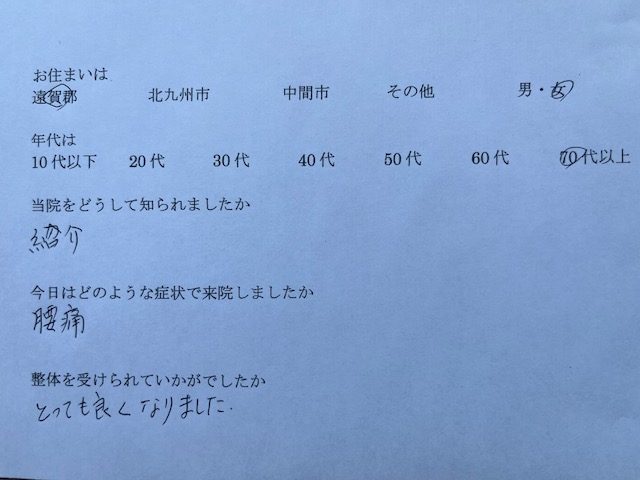 お住まいは
遠賀郡 北九州市 中間市 その他 男・女
年代は
10代以下 20代 30代 40代 50代 60代 70代以上
当院をどうして知られましたか
紹介
今日はどのような症状で来院しましたか
腰痛
整体を受けられていかがでしたか
とっても良くなりました.